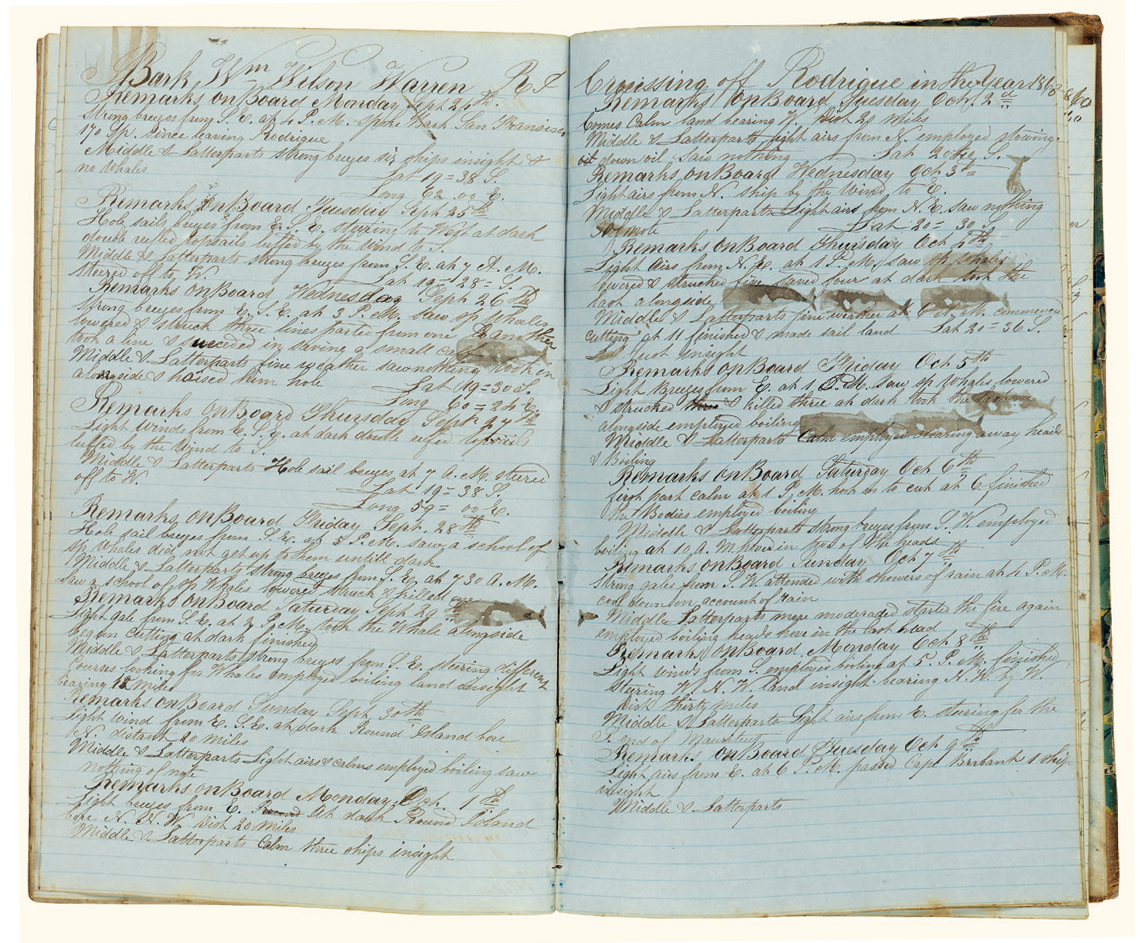 Bark Wm Wilson Warren R I
Remarks on Board Monday Sept 24th
Strong breezes from S. E. at 4 P. M. Spoke Bark San Fransisco
170 Sp. Since leaving Rodrigue
Middle & Latterparts strong breezes six ships insight &
no Whales
Lat 19=38 S.
Long 62 00 E.
Remarks on Board Tuesday Sept 25th
Hole sails breezes from E. S. E. steering to West at dark
double reefed topsails luffed by the wind to S.
Middle & Latterparts strong breezes from S. E. at 7 A. M.
steered off to W.
Lat 19=28= S.
Remarks on Board Wednesday Sept 26th
Strong breezes from E. S. E. at 3 P. M. saw sp. Whales
lowered & struck three lines parted from one
took a line & succeded in saving a small one
Middle & Latterparts fine weather saw nothing took on
alongside & haised him hole
Lat 19=30 S.
Long 60=24 E.
Remarks on Board Thursday Sept 27th
Light Winds from E. S. E. at dark double reefed topsails
luffed by the Wind to S.
Middle & Latterparts Hole sail breezes at 7 A. M. steered
off to W.
Lat 19=38 S.
Long 59=00 E.
Remarks on Board Friday Sept. 28th
Hole sail breezes from S. E. at 5 P. M. saw a school of
sp. Whales did not get up to them untill dark
Middle & Latterparts strong breezes from S. E. at 7 30 A. M.
saw a school of sp Whales lowered struck & killed one
Remarks on Board Saturday Sept. 29th
Light gale from S. E. at 2 P. M. took the Whale alongside
began cutting at dark finished
Middle & Latterparts strong breezes from S. E. steering different
courses looking for Whales employed boiling land insight
bearing 18 Miles
Remarks on Board Sunday Sept. 30th
Light wind from E. S. E. at dark Round Island bore
N. distant 20 Miles
Middle & Latterparts Light airs & calms employed boiling saw
nothing of note
Remarks on Board Monday Oct. 1th
Light breezes from E. at dark Round Island
bore N. W. Dist 20 Miles
Middle & Latterparts calm three ships insight
Cruissing off Rodrigue in the Year 1860
Remarks on Board Tuesday Oct. 2th
Comes Calm land bearing W. Dist 20 Miles
Middle & Latterparts light airs from N. employed stowing
down oil saw nothing Lat S.
Remarks on Board Wednesday Oct 3th
Light airs from N. ship by the Wind to E.
Middle & Latterparts Light airs from N. E. saw nothing
Lat 20=30
Remarks on Board Thursday Oct 4th
Light airs from N. E. at 1 P. M. saw sp Whales
lowered & strucked five saved four at dark took the
last alongside
Middle & Latterparts fine weather at 6 A. M. commenced
cutting at 11 finished & made sail land Lat 20=36 S.
just insight
Remarks on Board Friday Oct 5th
Light Breezes from E. at 1 P. M. saw sp Whales lowered
& strucked & killed three at dark took the
alongside employed boiling
Middle & Latterparts Calm employed clearing away heads
& Boiling
Remarks on Board Saturday Oct 6th
first part calm at 1 P. M. hook on to cut at 6 finished
the Bodies employed boiling
Middle & Latterparts strong breezes from S. W. employed
boiling at 10 A. M. hove in two of the heads
Remarks on Board Sunday Oct 7th
Strong gales from S. W. attended with showers of rain at 4 P. M.
cool down on account of rain
Middle Latterparts more moderaded started the fire again
employed boiling heads hove in the last head
Remarks on Board Monday Oct 8th
Light winds from S. employed boiling at 5 P. M. finished
stering W. N. W. land insight bearing N. W. by W.
Dist thirty miles
Middle & Latterparts Light airs from E. steering for the
S. end of Mauritius
Remarks on Board Tuesday Oct 9th
Light airs from E. at 6 P. M. passed Cape Brabant 1 ship
insight
Middle & Latterparts